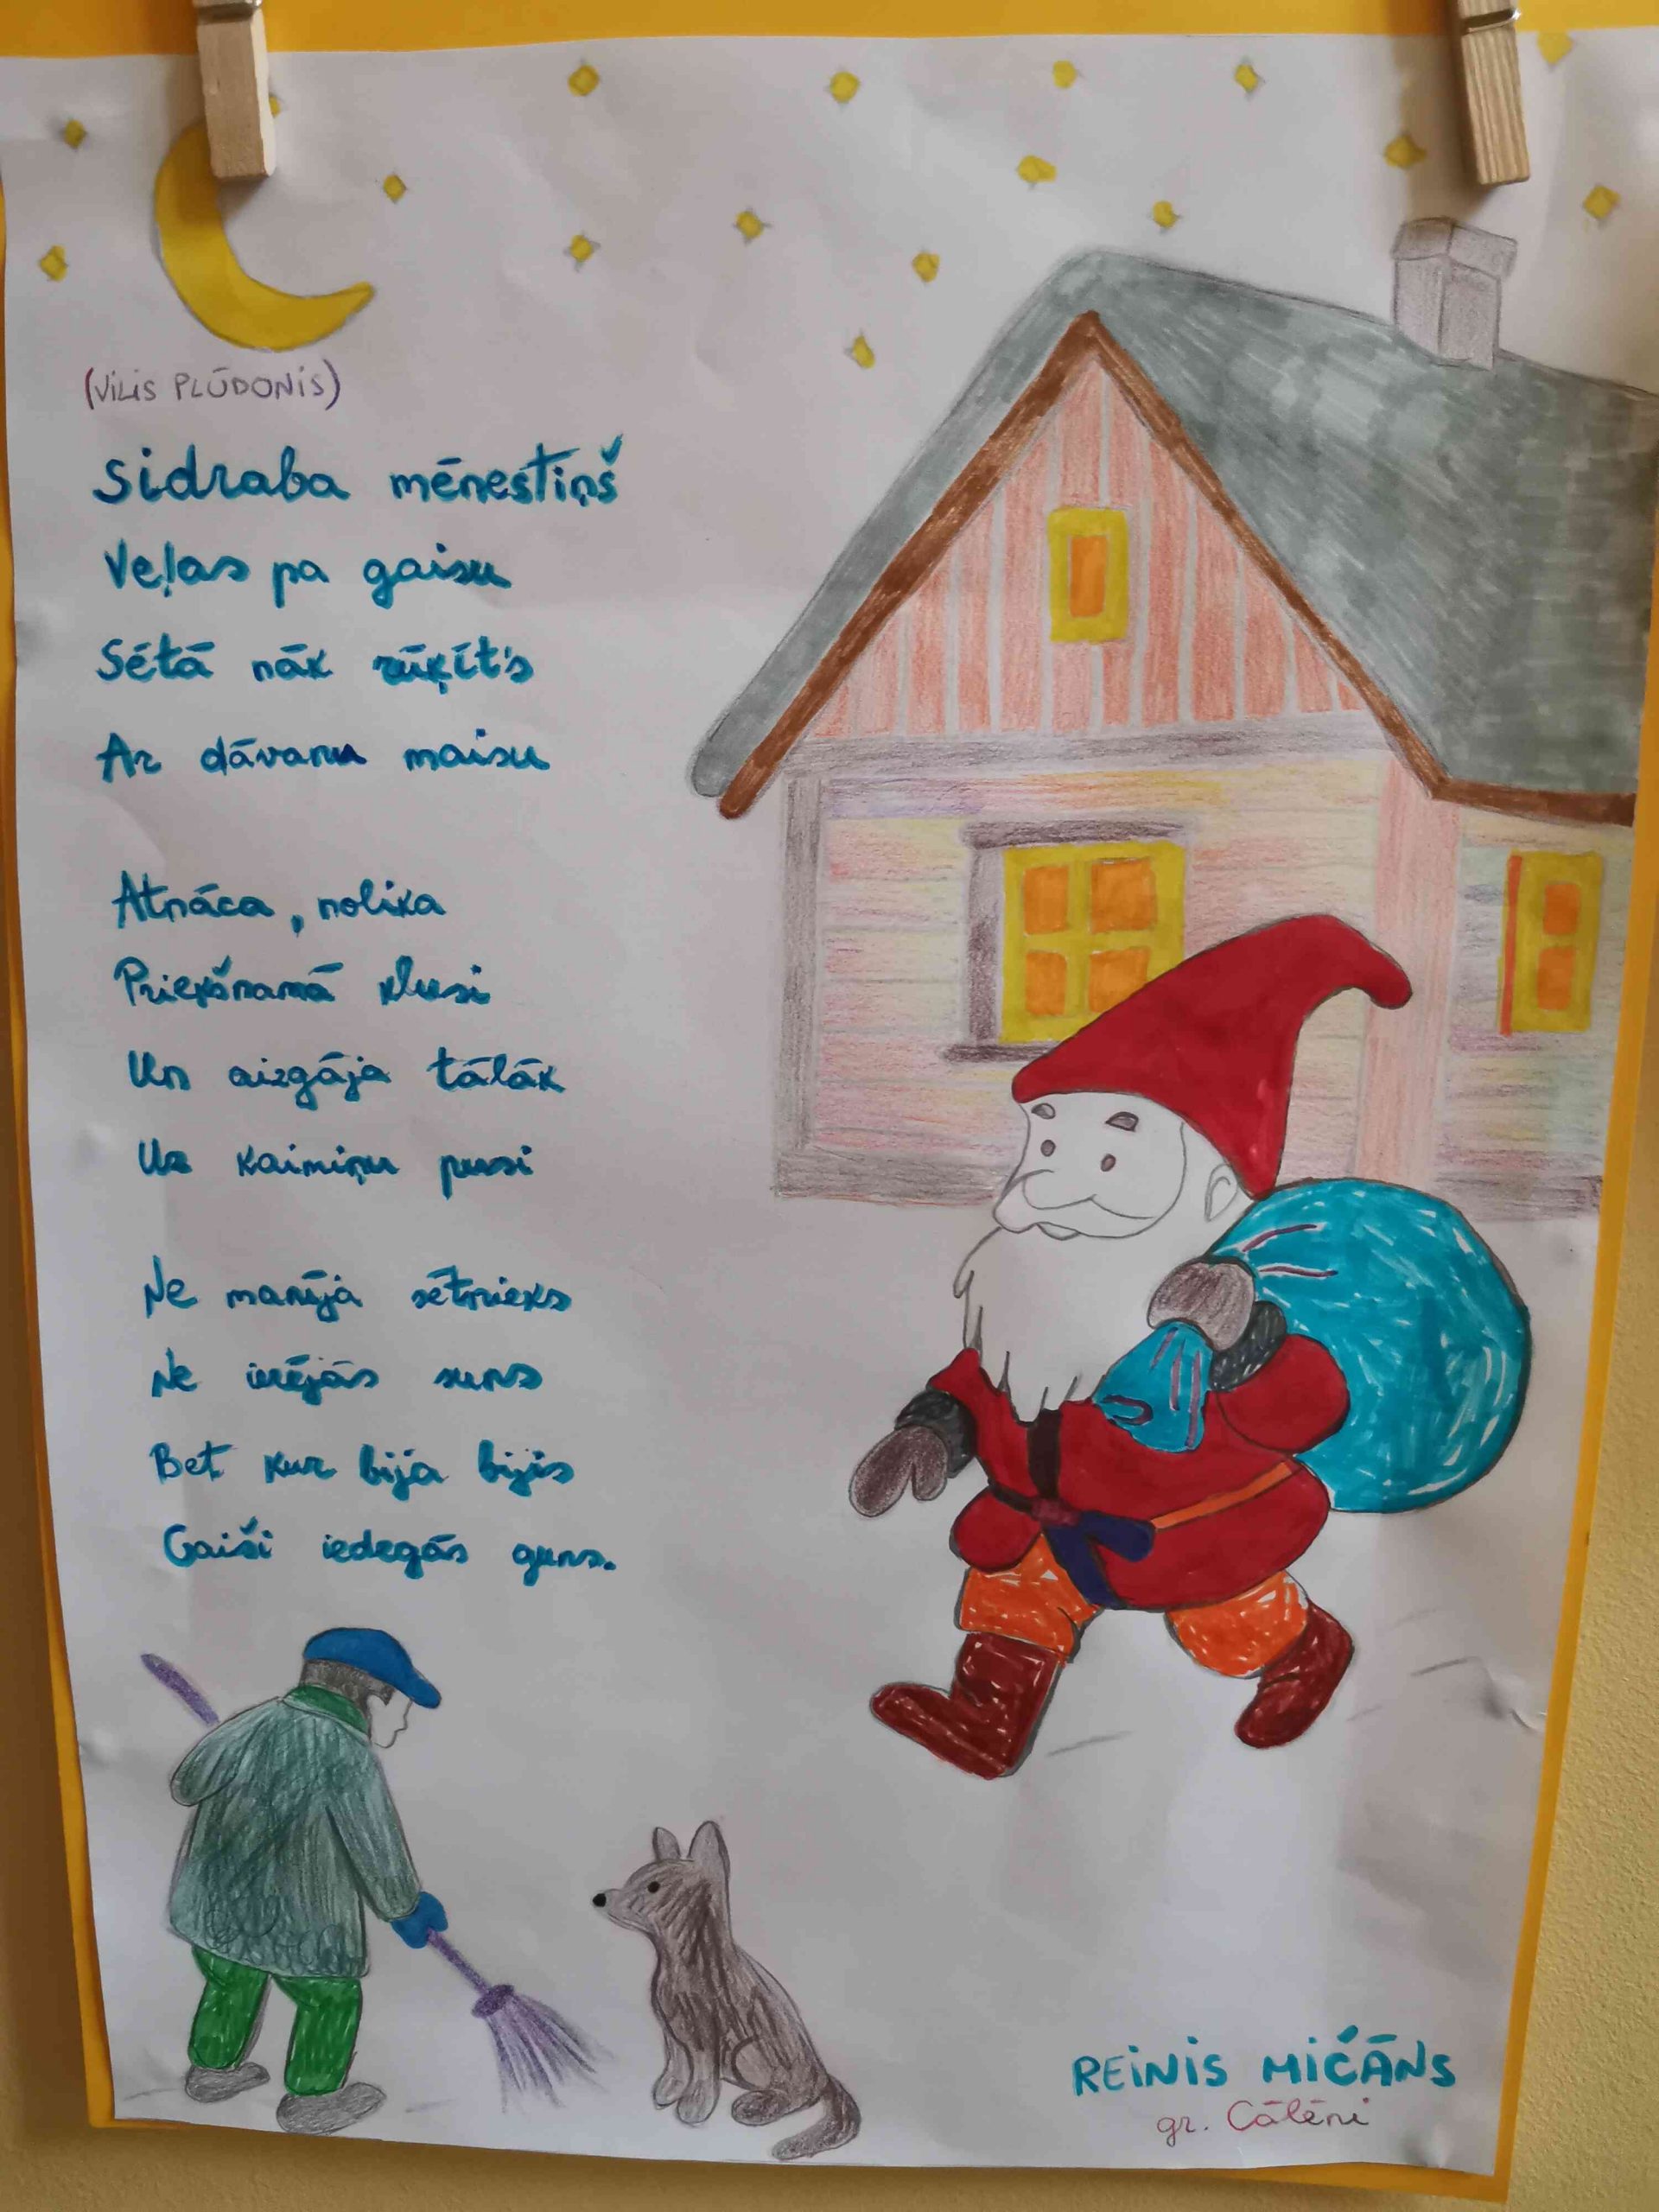 (VILIS PLŪDONIS)
Sidraba mēnestiņš
Veļas pa gaisu
Sētā nāk rūķīt's
Ar dāvanu maisu
Atnāca, nolika
Priekšnamā klusi
Un aizgāja tālāk
Uz kaimiņu pusi
Ne manīja sētnieks
Ne ierējās suns
Bet kur bija bijis
Gaiši iedegās guns.
REINIS MIČĀNS
gr. Cālēni